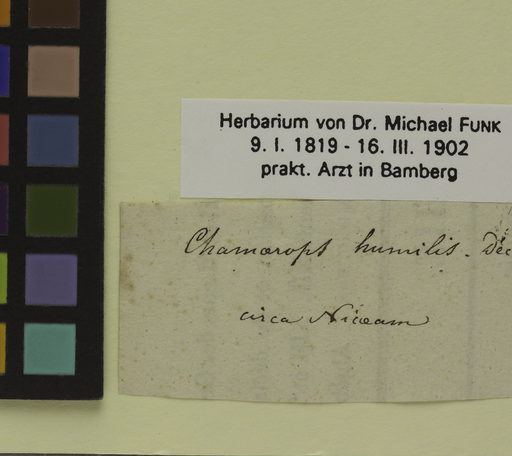 Herbarium von Dr. Michael FUNK
9. I. 1819 - 16. III. 1902
prakt. Arzt in Bamberg
Chamærops humilis.
circa Nicæam